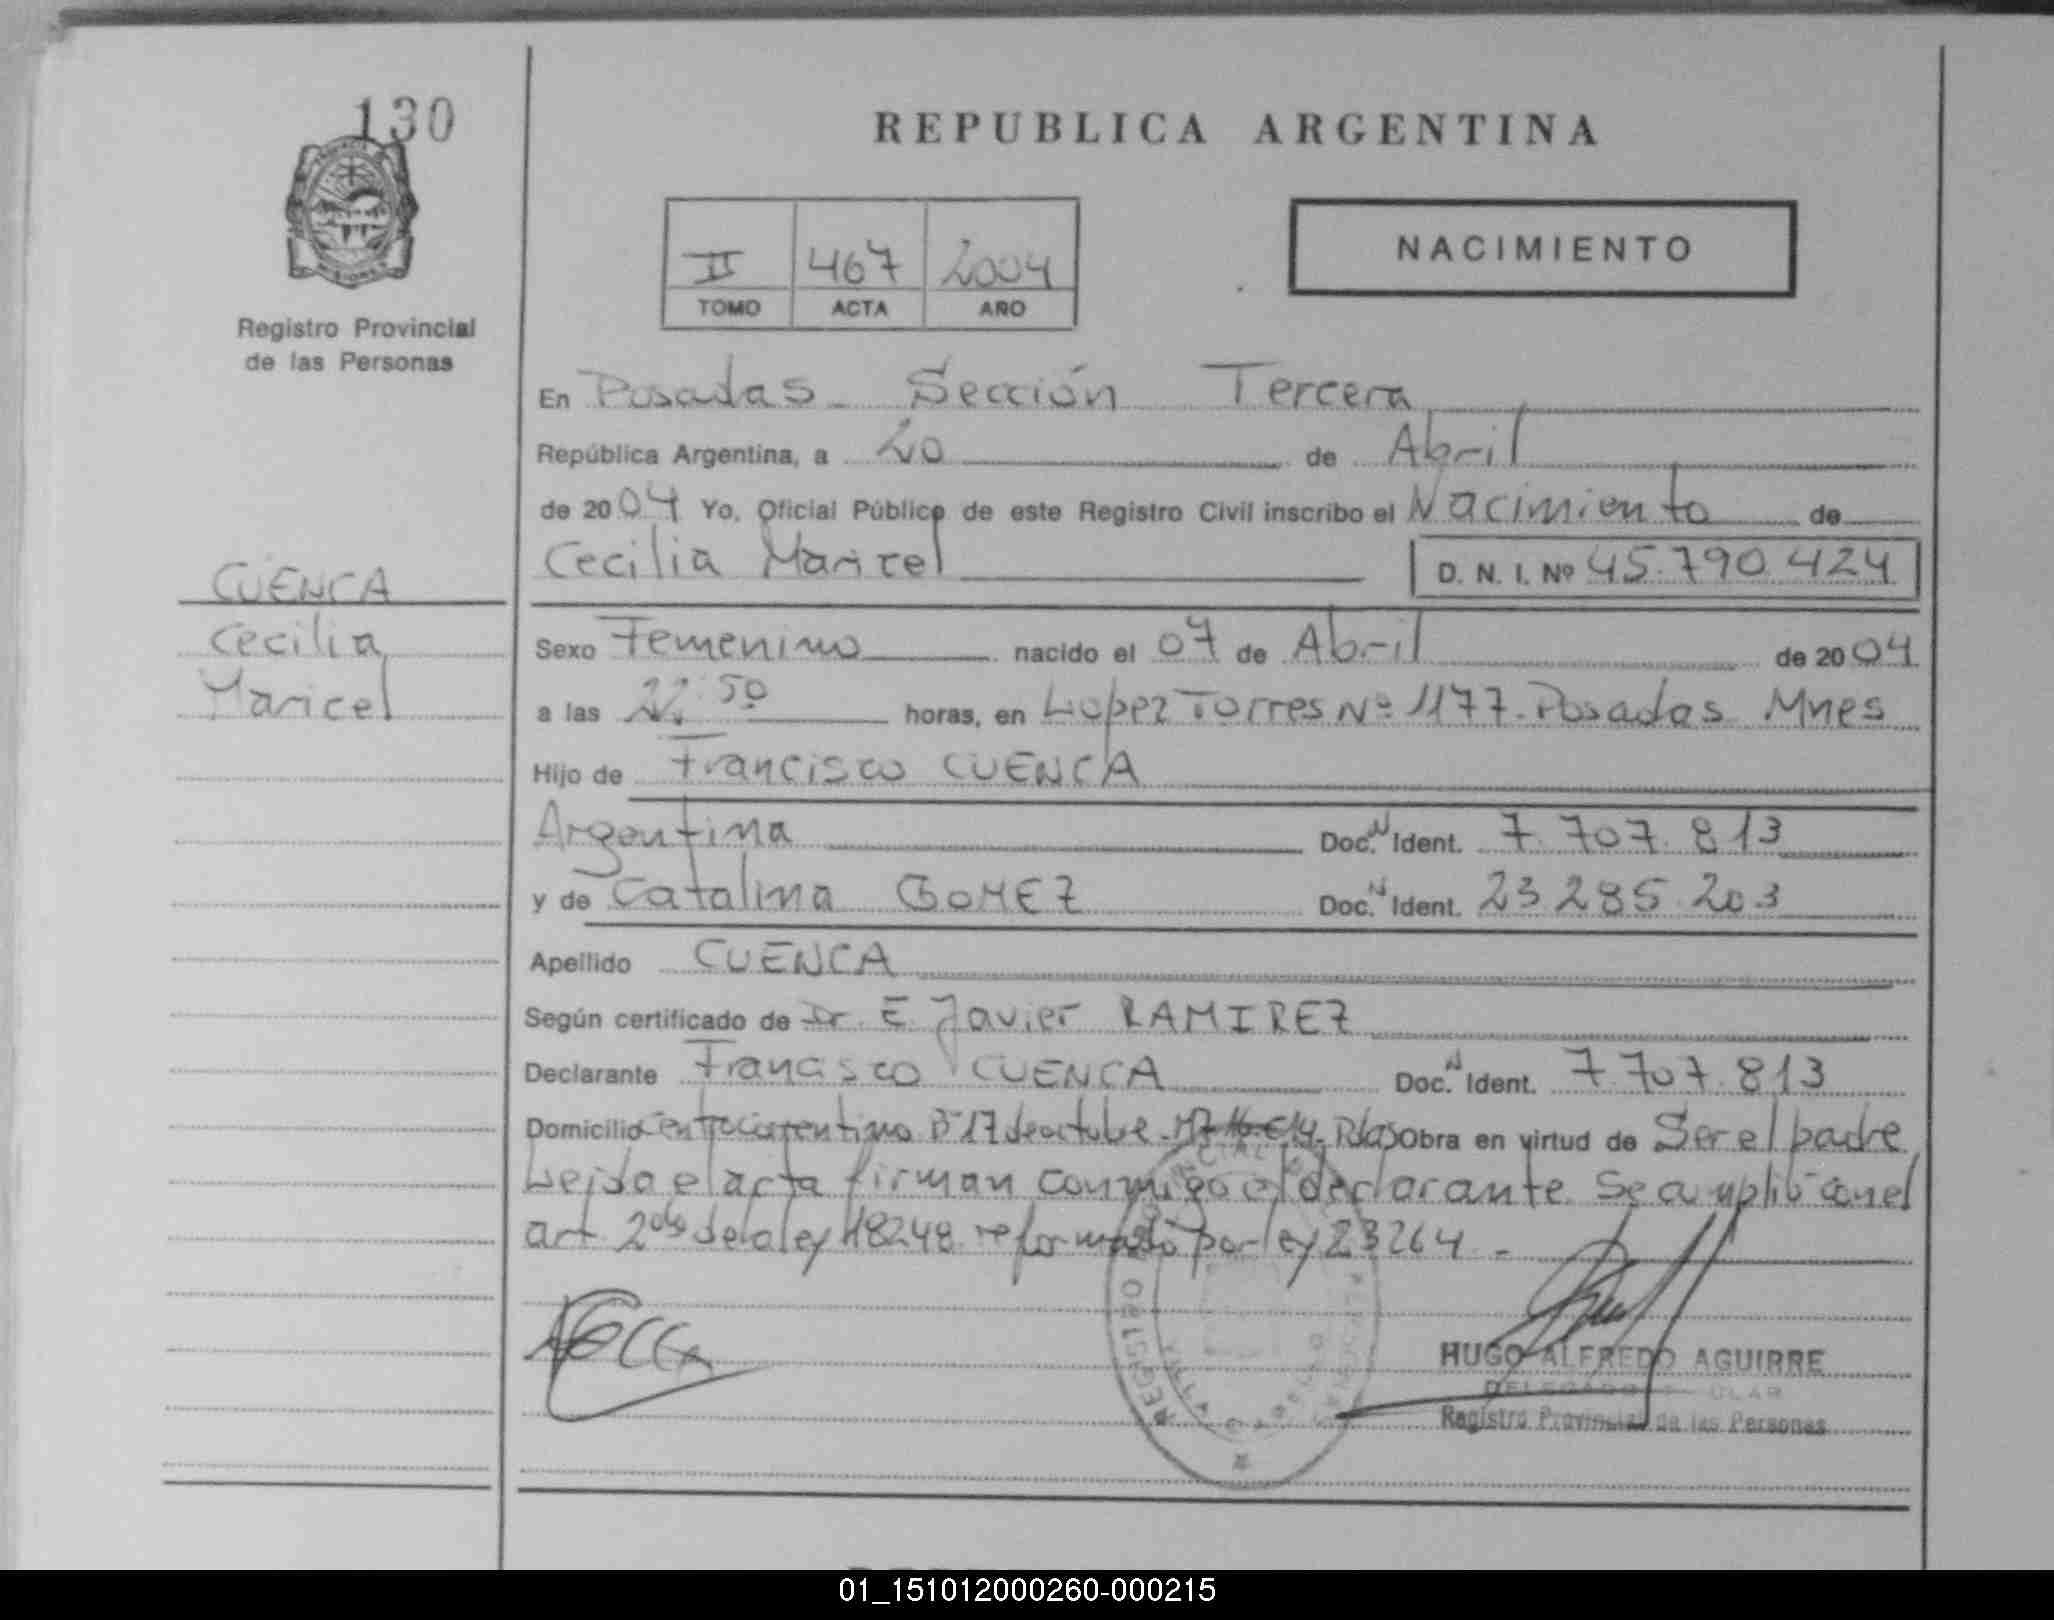 130
REPUBLICA ARGENTINA
NACIMIENTO
II 467 2004
TOMO ACTA AÑO
Registro Provincial
de las Personas
En Posadas - Sección Tercera
República Argentina, a 20 de Abril
de 2004 Yo, Oficial Público de este Registro Civil inscribo el Nacimiento de
Cecilia Maricel D. N. I. Nº 45.790.424
CUENCA
Cecilia
Maricel
Sexo Femenino nacido el 07 de Abril de 2004
a las 22:50 horas, en Lopez Torres Nº 1177 - Posadas Mnes
Hijo de Francisco CUENCA
Argentina Doc. N Ident. 7.707.813
y de Catalina GOMEZ Doc. N Ident. 23.285.203
Apellido CUENCA
Según certificado de Dr. E. Javier RAMIREZ
Declarante Francisco CUENCA Doc. N Ident. 7.707.813
Domicilio 17 de octubre Obra en virtud de Ser el padre
Leida el acta firman conmigo el declarante. Se cumplió con el
art 2do de la ley 18248 reformado por ley 23264 -
HUGO ALFREDO AGUIRRE
Registro Provincial de las Personas
01_151012000260-000215